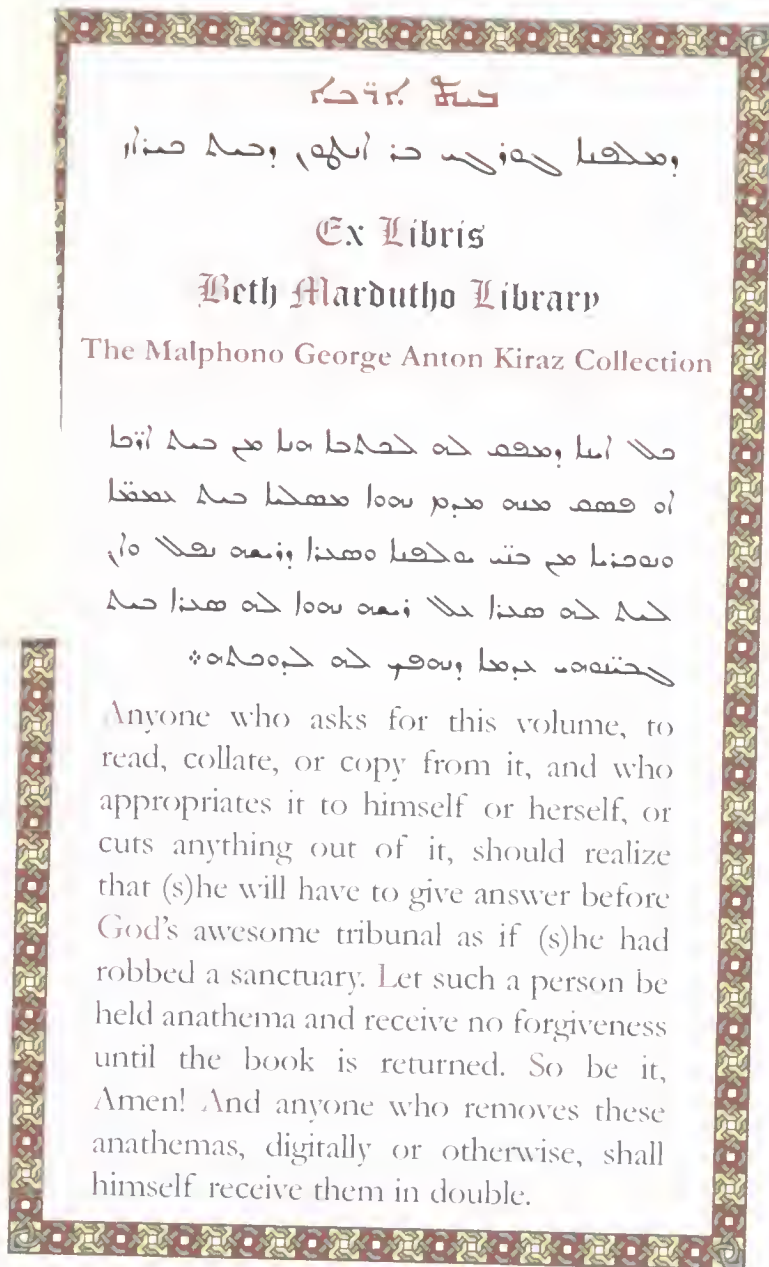 ܒܝܬ ܐܪ̈ܟܐ
ܕܡܠܦܢܐ ܓܘܪܓܝ ܒܪ ܐܢܛܘܢ ܕܒܝܬ ܟܝܪܐܙ
Ex Libris
Beth Mardutho Library
The Malphono George Anton Kiraz Collection
ܟܠ ܐܝܢܐ ܕܡܦܩ ܠܗ ܠܟܬܒܐ ܗܢܐ ܡܢ ܒܝܬ ܐܪ̈ܟܐ
ܐܘ ܦܣܩ ܡܢܗ ܡܕܡ ܢܗܘܐ ܡܣܠܝܐ ܒܝܬ ܥܡܡ̈ܐ
ܘܢܘܟܪܝܐ ܡܢ ܒܢ̈ܝ ܝܘܠܦܢܐ ܘܣܥܪܐ ܕܪܝܫܗ ܢܦܠ ܘܐܢ
ܠܝܬ ܠܗ ܣܥܪܐ ܥܠ ܪܝܫܗ ܢܗܘܐ ܠܗ ܣܥܪܐ ܒܝܬ
ܓܒܝܢ̈ܘܗܝ ܥܕܡܐ ܕܢܗܦܘܟ ܠܗ ܠܕܘܟܬܗ܀
Anyone who asks for this volume, to
read, collate, or copy from it, and who
appropriates it to himself or herself, or
cuts anything out of it, should realize
that (s)he will have to give answer before
God's awesome tribunal as if (s)he had
robbed a sanctuary. Let such a person be
held anathema and receive no forgiveness
until the book is returned. So be it,
Amen! And anyone who removes these
anathemas, digitally or otherwise, shall
himself receive them in double.